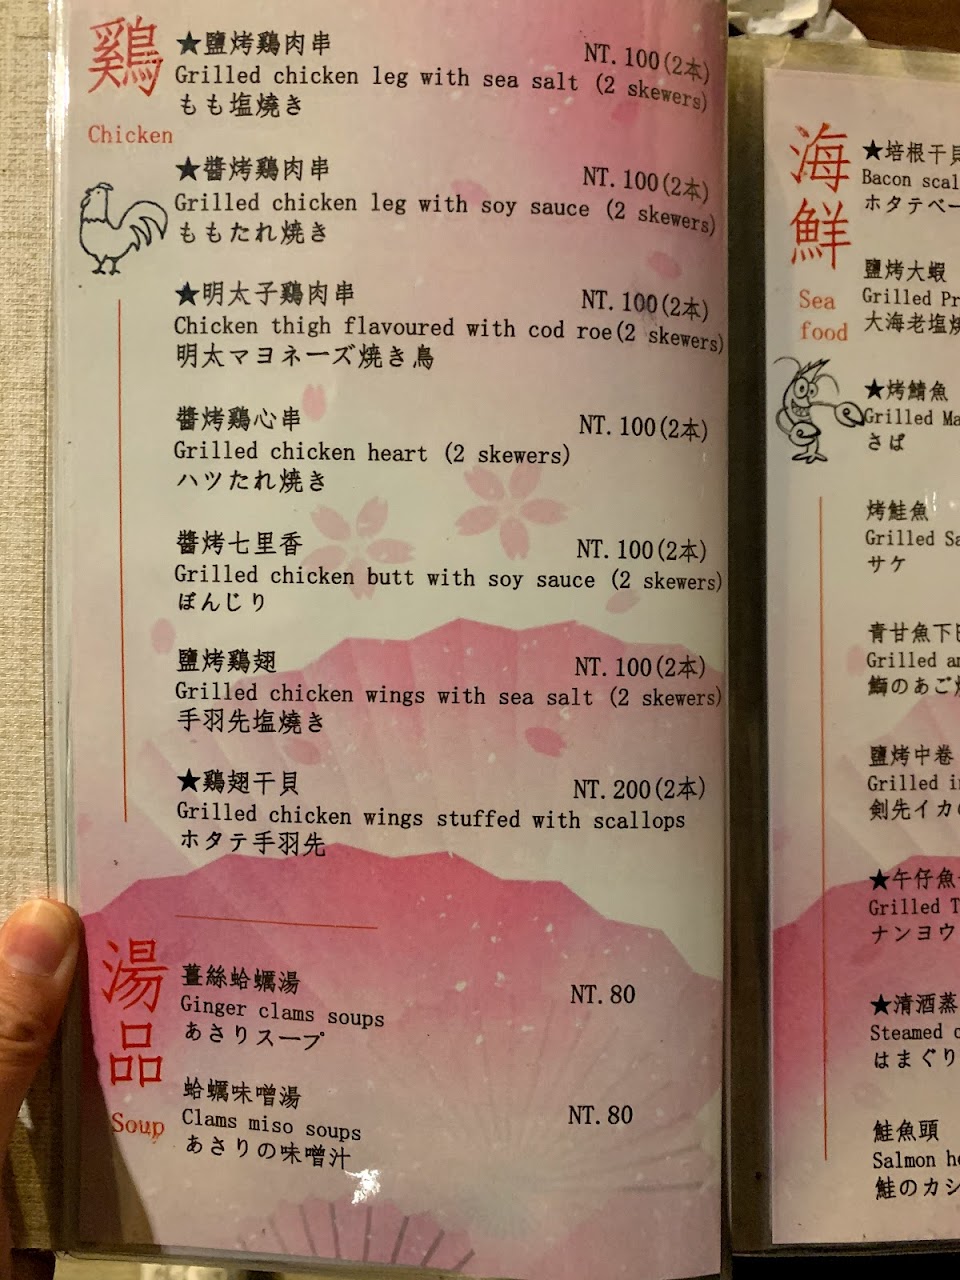 鷄
Chicken
★鹽烤鷄肉串 NT.100(2本)
Grilled chicken leg with sea salt (2 skewers)
もも塩焼き
★醬烤鷄肉串 NT.100(2本)
Grilled chicken leg with soy sauce (2 skewers)
ももたれ焼き
★明太子鷄肉串 NT.100(2本)
Chicken thigh flavoured with cod roe(2 skewers)
明太マヨネーズ焼き鳥
醬烤鷄心串 NT.100(2本)
Grilled chicken heart (2 skewers)
ハツたれ焼き
醬烤七里香 NT.100(2本)
Grilled chicken butt with soy sauce (2 skewers)
ぼんじり
鹽烤鷄翅 NT.100(2本)
Grilled chicken wings with sea salt (2 skewers)
手羽先塩焼き
★鷄翅干貝 NT.200(2本)
Grilled chicken wings stuffed with scallops
ホタテ手羽先
湯品
Soup
薑絲蛤蠣湯 NT.80
Ginger clams soups
あさりスープ
蛤蠣味噌湯 NT.80
Clams miso soups
あさりの味噌汁
海鮮
Sea
food
★培根干貝
Bacon scal
ホタテベー
鹽烤大蝦
Grilled Pr
大海老塩焼
★烤鯖魚
Grilled Ma
さば
烤鮭魚
Grilled Sa
サケ
青甘魚下巴
Grilled am
鰤のあご焼
鹽烤中卷
Grilled in
剣先イカの
★午仔魚
Grilled T
ナンヨウ
★清酒蒸
Steamed c
はまぐり
鮭魚頭
Salmon he
鮭のカシ